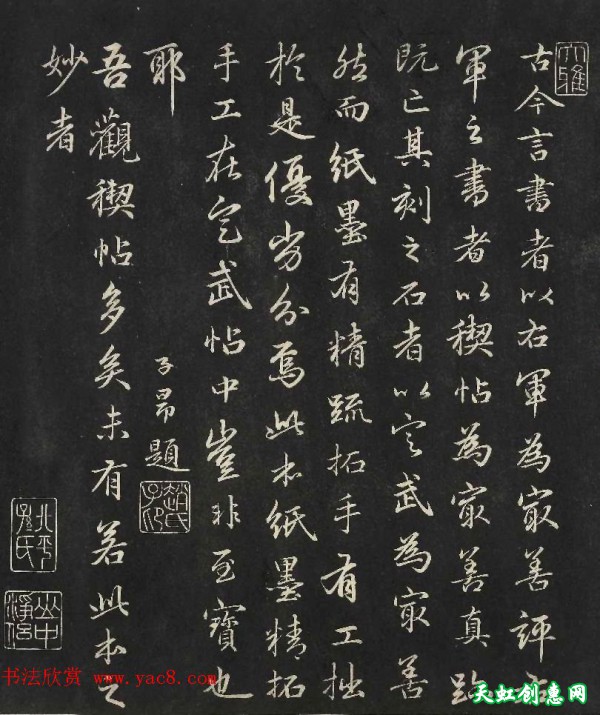 大雅
古今言書者以右軍為㝡善評右
軍之書者以稧帖為㝡善真跡
既亡其刻之石者以定武為㝡善
然而紙墨有精疏拓手有工拙
於是優劣分焉此本紙墨精拓
手工在定武帖中豈非至寶也
耶
子昂題
趙氏子昂
吾觀稧帖多矣未有若此本之
妙者
书法欣赏 www.yac8.com
天虹创意网